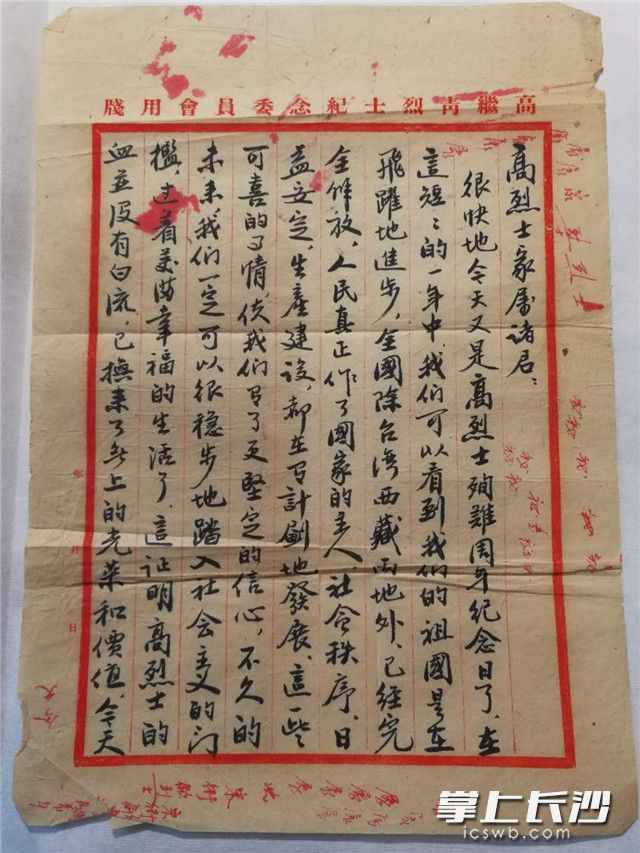 高繼青烈士紀念委員會用牋
高烈士家屬諸君：
很快地今天又是高烈士殉難周年紀念日了，在
這短々的一年中，我們可以看到我們的祖國是在
飛躍地進步，全國除台灣西藏両地外，已經完
全解放，人民真正作了國家的主人，社会秩序，日
益安定，生產建設，都在有計劃地發展，這一些
可喜的事情，使我們有了更堅定的信心，不久的
未来，我們一定可以很稳步地踏入社会主义的门
檻，过着美满幸福的生活了，這证明高烈士的
血並没有白流，已換来了无上的光荣和價值今天
掌上长沙
icswb.com